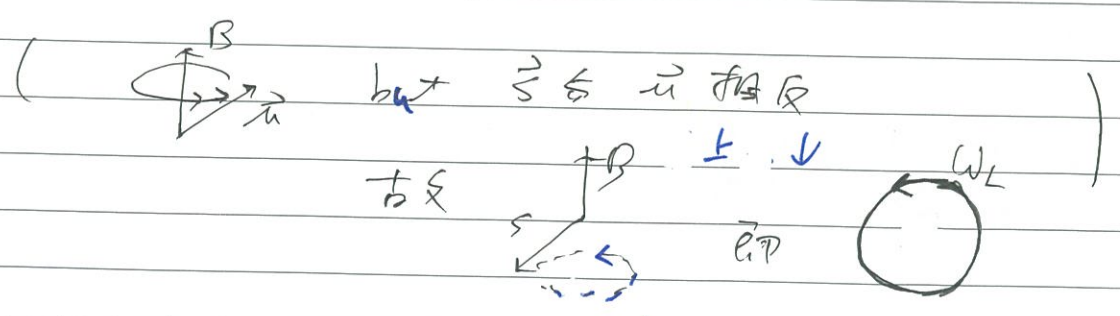 ( B μ⃗ but S⃗ 与 μ⃗ 相反 )
上 ↓
B ω_L
故 S
即